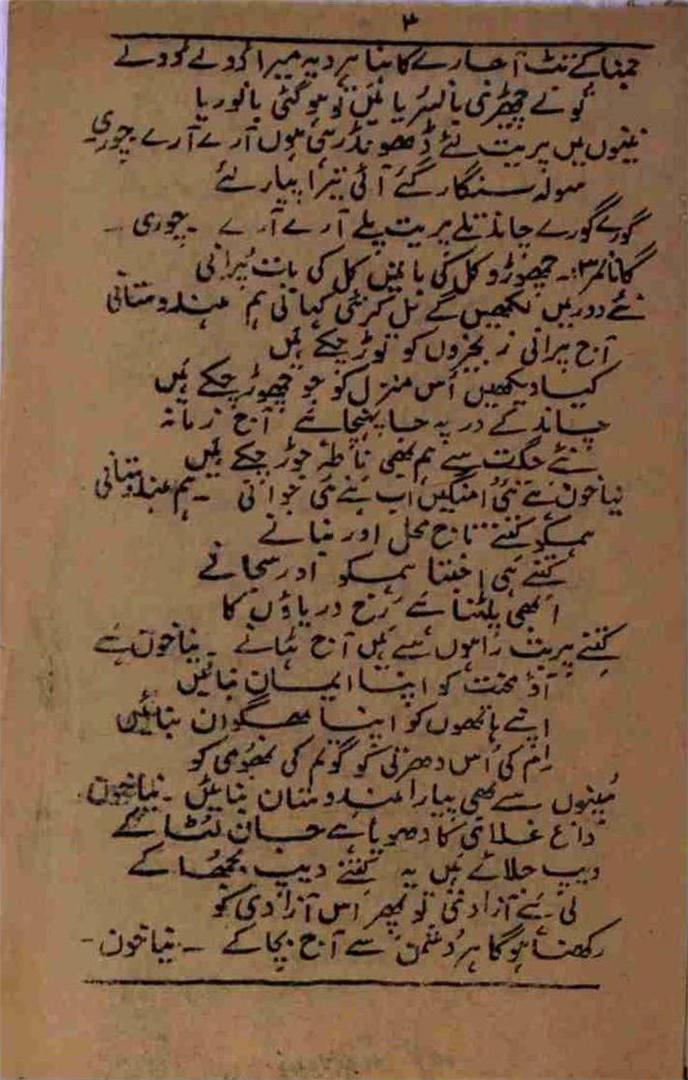 ۳
جمنا کے تٹ آجا رے کاہنا ہردیہ میرا ڈولے ڈولے
تو نے چھیڑی بانسریا میں تو ہو گئی بانوریا
نینوں میں پریت لئے ڈھونڈ رہی ہوں آرے آرے چوری
سولہ سنگار کئے آئی تیرا پیار لئے
گورے گورے چاند تلے پریت پلے آرے آرے ۔ چوری ۔
گانا نمبر ۳: ۔ چھوڑو کل کی باتیں کل کی بات پرانی
نئے دور میں لکھیں گے مل کر نئی کہانی ہم ہندوستانی
آج پرانی زنجیروں کو توڑ چکے ہیں
کیا دیکھیں اس منزل کو جو چھوڑ چکے ہیں
چاند کے در پہ جا پہنچا ہے آج زمانہ
نئے جگت سے ہم بھی ناطہ جوڑ چکے ہیں
نیا خون ہے نئی امنگیں اب ہے نئی جوانی ۔ ہم ہندوستانی
ہمکو کتنے تاج محل اور بنانے
کتنے ہی اجنتا ہمکو اور سجانے
ابھی پلٹنا ہے رخ دریاؤں کا
کتنے پربت راہوں سے ہیں آج ہٹانے ۔ نیا خون ہے
آؤ محنت کو اپنا ایمان بنائیں
اپنے ہاتھوں کو اپنا بھگوان بنائیں
رام کی اس دھرتی کو گوتم کی بھومی کو
سپنوں سے بھی پیارا ہندوستان بنائیں ۔ نیا خون
داغ غلامی کا دھویا ہے جان لٹا کے
دیپ جلائے ہیں یہ کتنے دیپ بجھا کے
لی ہے آزادی تو پھر اس آزادی کو
رکھنا ہوگا ہر دشمن سے آج بچا کے ۔ نیا خون ۔